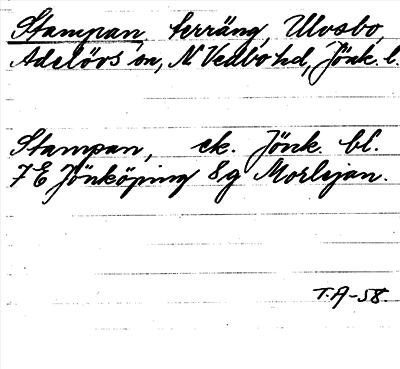 Stampan, terräng, Ulvsbo,
Adelövs sn, N. Vedbo hd, Jönk. l.
Stampan, ek. Jönk. bl.
7E Jönköping 8g Morlejan.
T.A-58.